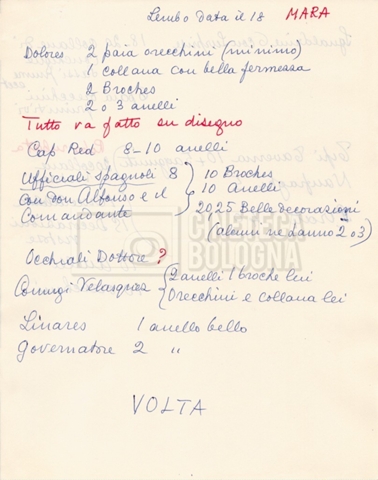 Limbo data il 18 MARA
Dolores 2 paia orecchini (minimo)
1 collana con bella fermezza
2 Broches
2 o 3 anelli
Tutto va fatto su disegno
Cap Red 8-10 anelli
Ufficiali spagnoli 8 10 Broches
con don Alfonso e il 10 Anelli
Comandante 20 25 Belle decorazioni
(alcuni ne danno 2 o 3)
Occhiali Dottore ?
Coniugi Velasquez 2 anelli 1 broche lui
Orecchini e collana lei
Linares 1 anello bello
governatore 2 "
VOLTA
CINETECA
BOLOGNA